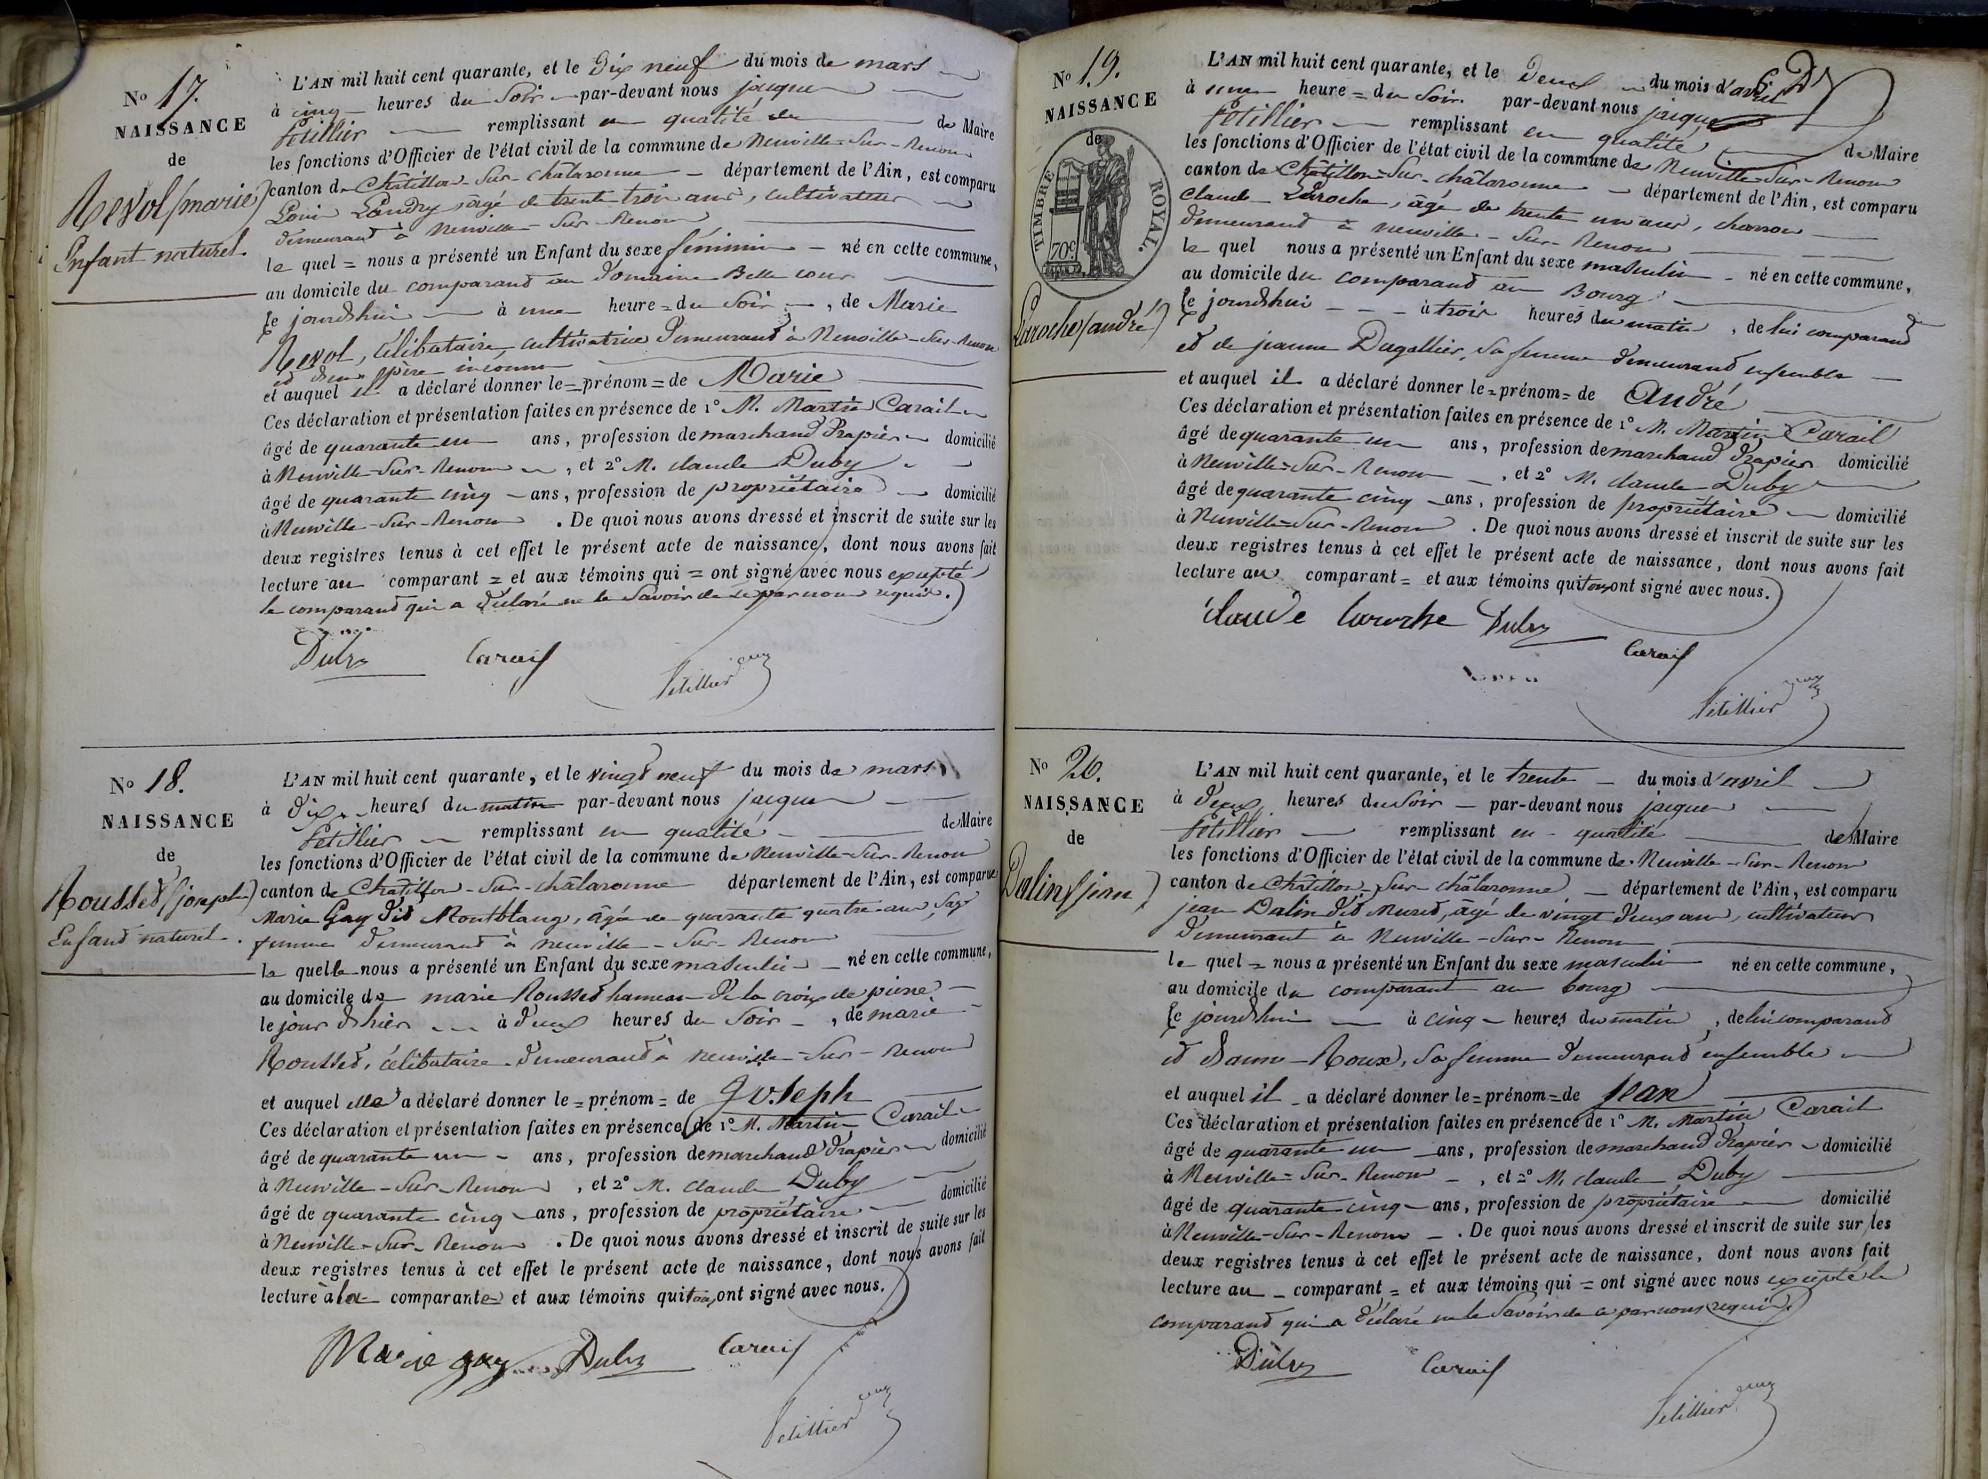 N° 17.
NAISSANCE
de
Revol (marie)
Enfant naturel.
L'AN mil huit cent quarante, et le Dix neuf du mois de mars
à cinq heures du Soir par-devant nous jacques
Petillier remplissant en qualité de Maire
les fonctions d'Officier de l'état civil de la commune de Neuville-Sur-Renom
canton de Châtillon-Sur-châlaronne département de l'Ain, est comparu
Louis Landry, âgé de trente trois ans, cultivateur
demeurand à Neuville-Sur-Renom
le quel = nous a présenté un Enfant du sexe féminin né en cette commune,
au domicile du comparand au Domaine Belle cour
le jourd'hui à une heure = du Soir, de Marie
Revol, célibataire, cultivatrice demeurand à Neuville-Sur-Renom
et d'un père inconnu
et auquel il a déclaré donner le = prénom = de Marie
Ces déclaration et présentation faites en présence de 1° M. Martin Carail
âgé de quarante un ans, profession de marchand Drapier domicilié
à Neuville-Sur-Renom, et 2° M. claude Duby
âgé de quarante cinq ans, profession de propriétaire domicilié
à Neuville-Sur-Renom. De quoi nous avons dressé et inscrit de suite sur les
deux registres tenus à cet effet le présent acte de naissance, dont nous avons fait
lecture au comparant = et aux témoins qui = ont signé avec nous excepté
le comparand qui a déclaré ne le Savoir de ce par nous requis.
Duby Carail
Petillier
N° 18.
NAISSANCE
de
Rousset (joseph)
Enfand naturel.
L'AN mil huit cent quarante, et le vingt neuf du mois de mars
à dix heures du matin par-devant nous jacques
Petillier remplissant en qualité de Maire
les fonctions d'Officier de l'état civil de la commune de Neuville-Sur-Renom
canton de Châtillon-Sur-châlaronne département de l'Ain, est comparue
Marie Gay dit Montblanc, âgée de quarante quatre ans, Sage
femme demeurand à neuville-Sur-Renom
le quelle nous a présenté un Enfant du sexe masculin né en cette commune,
au domicile de marie Rousset hameau de la croix de pierre
le jour d'hier à deux heures du Soir, de marie
Rousset, célibataire demeurand à neuville-Sur-Renom
et auquel elle a déclaré donner le = prénom = de Joseph
Ces déclaration et présentation faites en présence de 1° M. Martin Carail
âgé de quarante un ans, profession de marchand Drapier domicilié
à Neuville-Sur-Renom, et 2° M. claude Duby
âgé de quarante cinq ans, profession de propriétaire domicilié
à Neuville-Sur-Renom. De quoi nous avons dressé et inscrit de suite sur les
deux registres tenus à cet effet le présent acte de naissance, dont nous avons fait
lecture à la comparante et aux témoins qui tous ont signé avec nous.
Marie gay Duby Carail
Petillier
N° 19.
NAISSANCE
de
TIMBRE ROYAL.
70c
Laroche (andré)
L'AN mil huit cent quarante, et le Deux du mois d'avril
à une heure = du Soir par-devant nous jacques
Petillier remplissant en qualité de Maire
les fonctions d'Officier de l'état civil de la commune de Neuville-Sur-Renom
canton de Châtillon-Sur-châlaronne département de l'Ain, est comparu
claude Laroche, âgé de trente un ans, charron
demeurand à neuville-Sur-Renom
le quel nous a présenté un Enfant du sexe masculin né en cette commune,
au domicile du comparand au Bourg
le jourd'hui à trois heures du matin, de lui comparand
et de jeanne Dugallier, Sa femme demeurand ensemble
et auquel il a déclaré donner le = prénom = de André
Ces déclaration et présentation faites en présence de 1° M. Martin Carail
âgé de quarante un ans, profession de marchand Drapier domicilié
à Neuville-Sur-Renom, et 2° M. claude Duby
âgé de quarante cinq ans, profession de propriétaire domicilié
à Neuville-Sur-Renom. De quoi nous avons dressé et inscrit de suite sur les
deux registres tenus à cet effet le présent acte de naissance, dont nous avons fait
lecture au comparant = et aux témoins qui tous ont signé avec nous.
claude laroche Duby
Carail
Petillier
N° 20.
NAISSANCE
de
Dalin (jean)
L'AN mil huit cent quarante, et le trente du mois d'avril
à deux heures du Soir par-devant nous jacques
Petillier remplissant en qualité de Maire
les fonctions d'Officier de l'état civil de la commune de Neuville-Sur-Renom
canton de Châtillon-Sur-châlaronne département de l'Ain, est comparu
jean Dalin dit Muret, âgé de vingt deux ans, cultivateur
demeurant à Neuville-Sur-Renom
le quel = nous a présenté un Enfant du sexe masculin né en cette commune,
au domicile du comparant au bourg
le jourd'hui à cinq heures du matin, de lui comparand
et Roux, Sa femme demeurand ensemble
et auquel il a déclaré donner le = prénom = de Jean
Ces déclaration et présentation faites en présence de 1° M. Martin Carail
âgé de quarante un ans, profession de marchand Drapier domicilié
à Neuville-Sur-Renom, et 2° M. claude Duby
âgé de quarante cinq ans, profession de propriétaire domicilié
à Neuville-Sur-Renom. De quoi nous avons dressé et inscrit de suite sur les
deux registres tenus à cet effet le présent acte de naissance, dont nous avons fait
lecture au comparant = et aux témoins qui = ont signé avec nous excepté le
comparand qui a déclaré ne le Savoir de ce par nous requis.
Duby Carail
Petillier